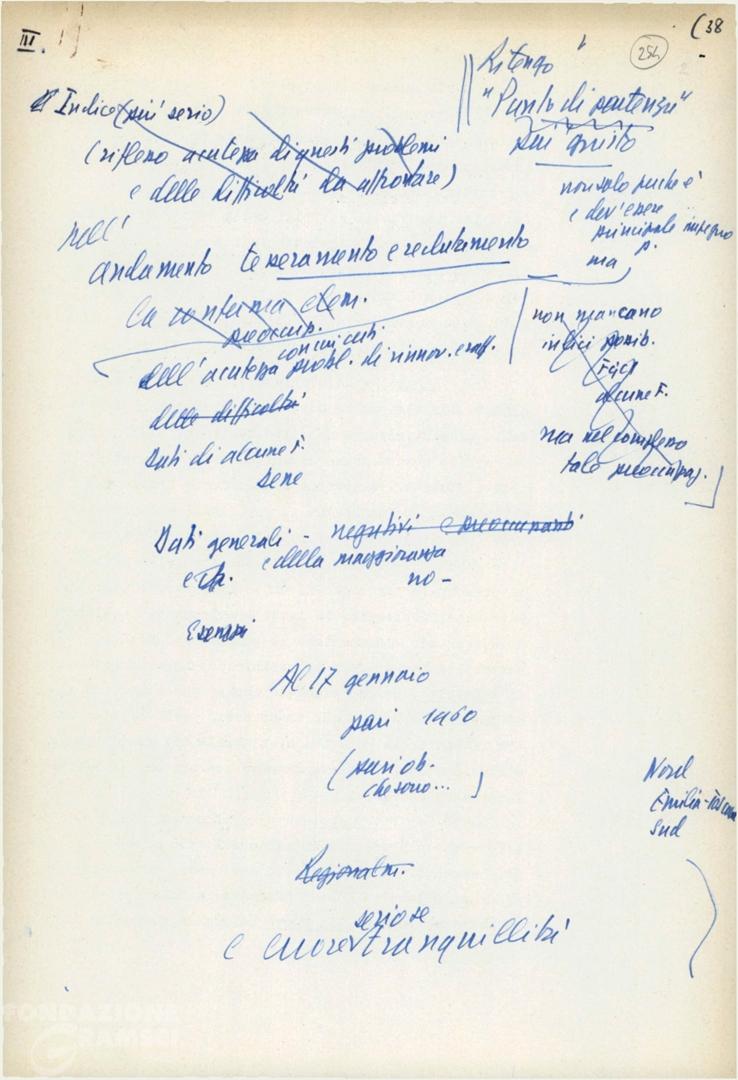 III.
(38
254
Ritengo
"Punto di partenza"
più giusto
non solo perché è
e dev'essere
principale impegno
ma p.
Indice (più serio)
(riflesso acutezza di questi problemi
e delle difficoltà da affrontare)
nell'
andamento tesseramento e reclutamento
La conferma elem.
preoccup.
connicati
dell'acutezza probl. di rinnov. e raff.
delle difficoltà
Dati di alcune F.
bene
non mancano
indici posit.
alcune F.
ma nel complesso
tale preoccupaz.
Dati generali - negativi e preoccupanti
e della maggioranza
no -
Esempi
Al 17 gennaio
pari 1960
(pari ob.
che sono... )
Nord
Emilia-Toscana
Sud
Regionalm.
serio se
e cuore tranquillità
FONDAZIONE
GRAMSCI